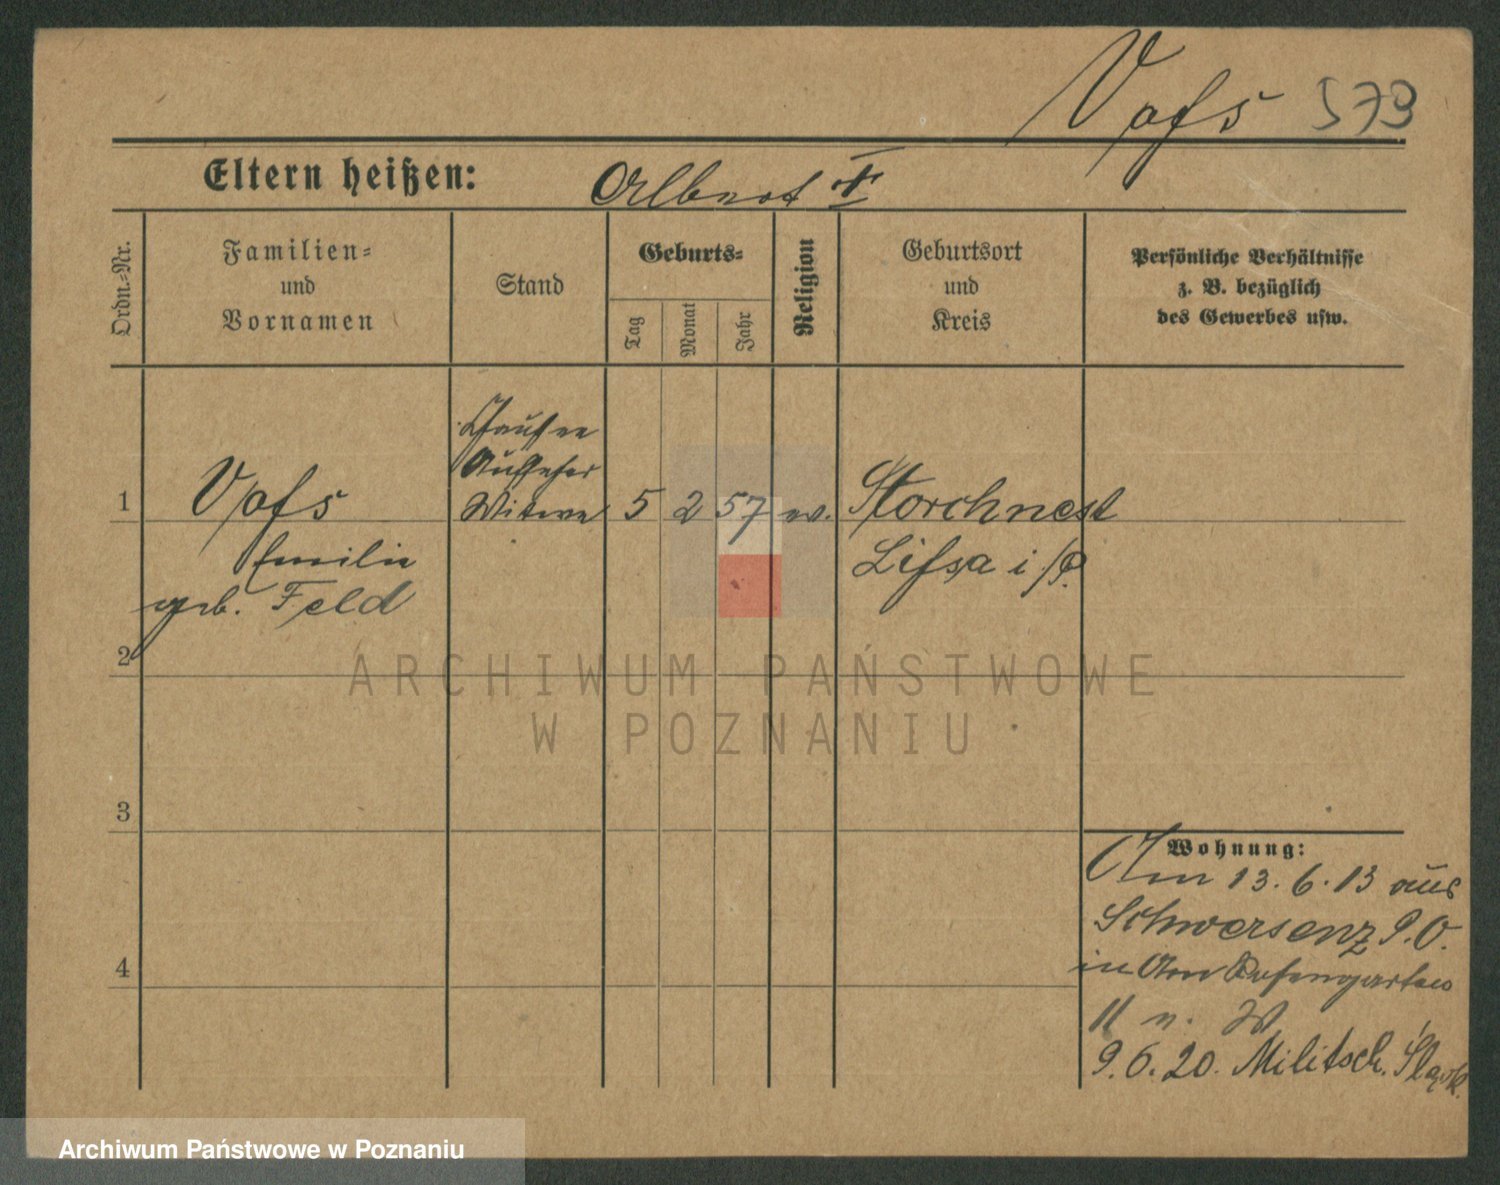 Voſs 573
Eltern heißen: Albert I
Ordn.-Nr.
Familien-
und
Vornamen
Stand
Geburts-
Tag
Monat
Jahr
Religion
Geburtsort
und
Kreis
Persönliche Verhältnisse
z. B. bezüglich
des Gewerbes usw.
Chaussee
Aufseher
Witwe
1 Voſs 5 2 57 ev. Storchnest
Emilie Liſsa i/P.
geb. Feld
2
ARCHIWUM PAŃSTWOWE
W POZNANIU
3
Wohnung:
Am 13.6.13 aus
Schwersenz P.O.
in Am Rosengarten
4
11 n. W
9.6.20. Militsch.
Archiwum Państwowe w Poznaniu